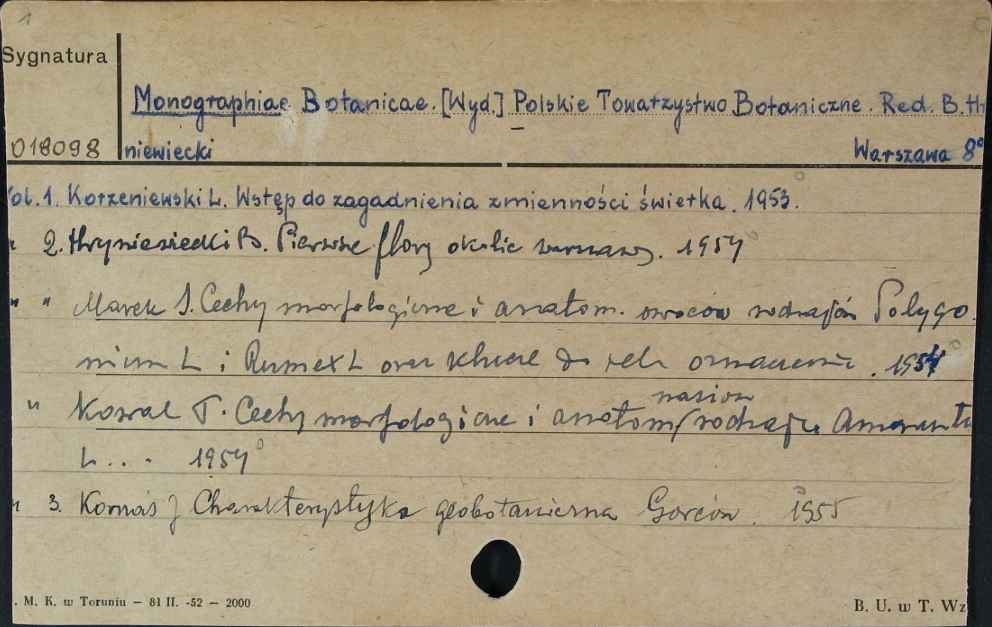 1
Sygnatura
Monographiae Botanicae. [Wyd.] Polskie Towarzystwo Botaniczne. Red. B. Hr
018098 niewiecki Warszawa 8°
ol. 1. Korzeniewski L. Wstęp do zagadnienia zmienności świerka. 1953.
" 2. Hryniewiecki B. Pierwsze flory okolic warszawy. 1954
" " Marek S. Cechy morfologiczne i anatom. owoców rodzajów Polygo
nium L i Rumex L oraz klucze do ich oznaczenia. 1954
" Kowal T. Cechy morfologiczne i anatom nasion rodzaju Amarantu
L... 1954
" 3. Kornaś J Charakterystyka geobotaniczna Gorców. 1955
. M. K. w Toruniu — 81 II. -52 — 2000
B. U. w T. Wz